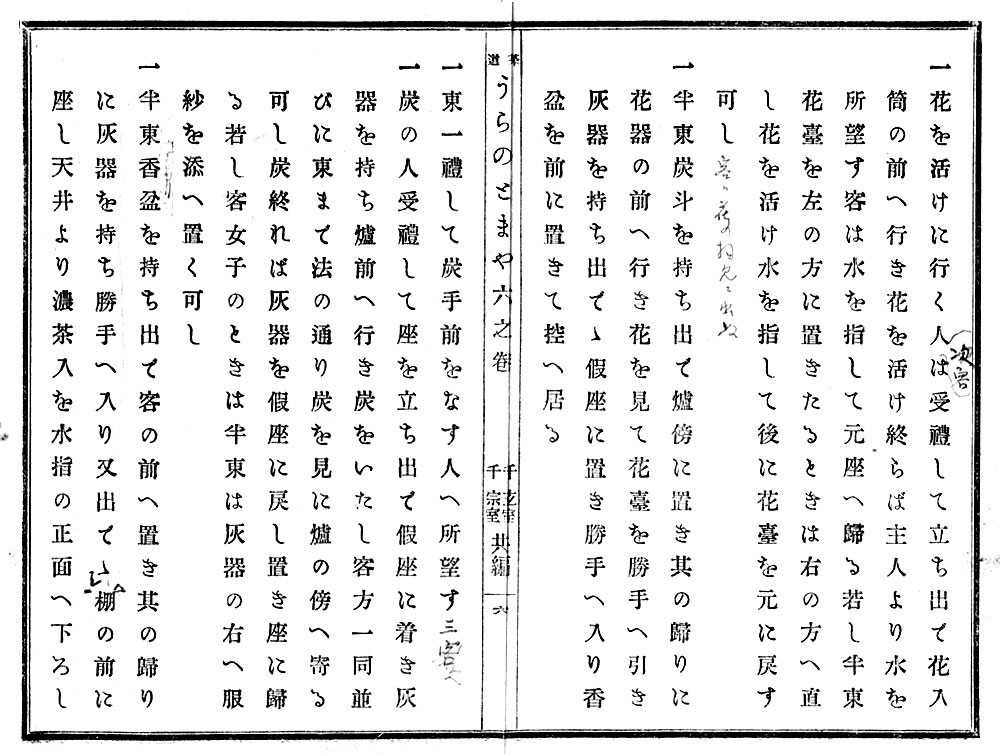 一花を活けに行く人は受禮して立ち出で花入
次客
筒の前へ行き花を活け終らば主人より水を
所望す客は水を指して元座へ歸る若し半東
花臺を左の方に置きたるときは右の方へ直
し花を活け水を指して後に花臺を元に戻す
可し
一半東炭斗を持ち出で爐傍に置き其の歸りに
花器の前へ行き花を見て花臺を勝手へ引き
灰器を持ち出でゝ假座に置き勝手へ入り香
盆を前に置きて控へ居る
茶道
うらのとまや六之卷
千玄室
千宗室
共編
六
一東一禮して炭手前をなす人へ所望す三客へ
一炭の人受禮して座を立ち出で假座に着き灰
器を持ち爐前へ行き炭をいたし客方一同並
びに東まで法の通り炭を見に爐の傍へ寄る
可し炭終れば灰器を假座に戻し置き座に歸
る若し客女子のときは半東は灰器の右へ服
紗を添へ置く可し
一半東香盆を持ち出で客の前へ置き其の歸り
に灰器を持ち勝手へ入り又出でゝ棚の前に
座し天井より濃茶入を水指の正面へ下ろし